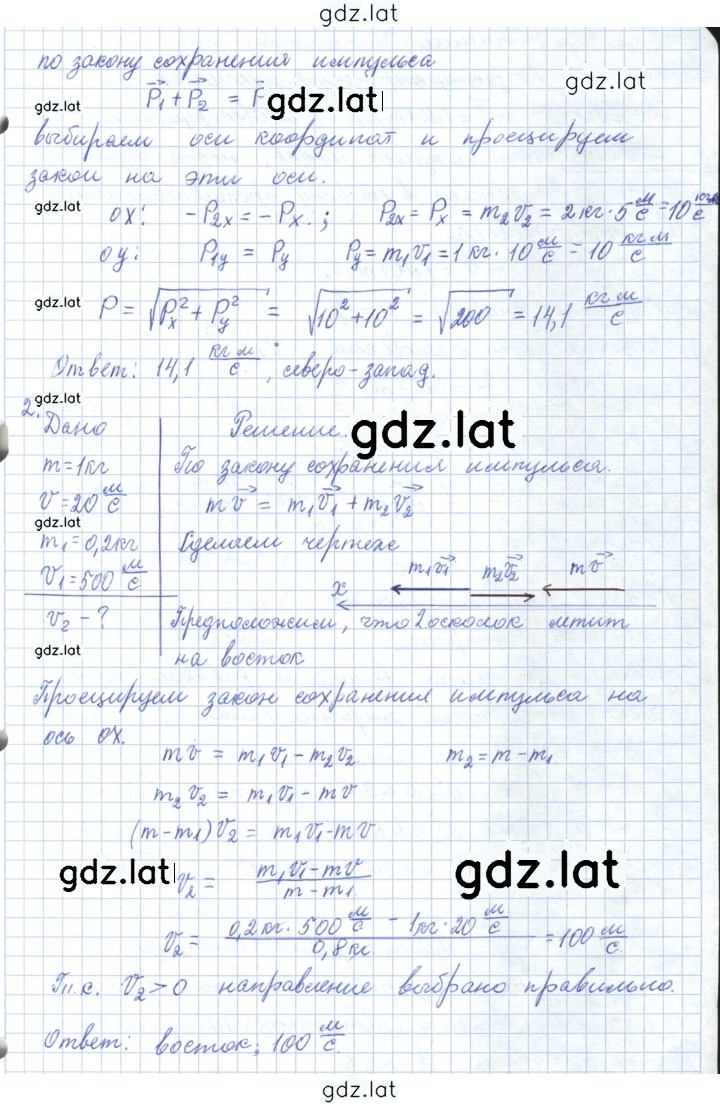 gdz.lat
по закону сохранения импульса
gdz.lat
P₁ + P₂ = gdz.lat
gdz.lat
выбираем оси координат и проецируем
закон на эти оси.
gdz.lat
ox: -P₂ₓ = -Pₓ.; P₂ₓ = Pₓ = m₂v₂ = 2кг·5 м/с = 10 кг
oy: P₁y = Py Py = m₁v₁ = 1 кг · 10 м/с = 10 кг м/с
gdz.lat
P = √(Pₓ² + Py²) = √(10² + 10²) = √200 = 14,1 кг м/с
Ответ: 14,1 кг м/с, северо-запад.
gdz.lat
2. Дано Решение. gdz.lat
m = 1кг По закону сохранения импульса.
v = 20 м/с mv = m₁v₁ + m₂v₂
gdz.lat
m₁ = 0,2кг Сделаем чертеж
v₁ = 500 м/с x m₁v₁ m₂v₂ mv
v₂ - ? Предположим, что 2 осколок летит
gdz.lat на восток
Проецируем закон сохранения импульса на
ось ox.
mv = m₁v₁ - m₂v₂ m₂ = m - m₁
m₂v₂ = m₁v₁ - mv
(m - m₁)v₂ = m₁v₁ - mv
gdz.lat v₂ = (m₁v₁ - mv)/(m - m₁) gdz.lat
v₂ = (0,2кг · 500 м/с - 1кг · 20 м/с)/(0,8кг) = 100 м/с
Т.к. v₂ > 0 направление выбрано правильно.
Ответ: восток; 100 м/с.
gdz.lat